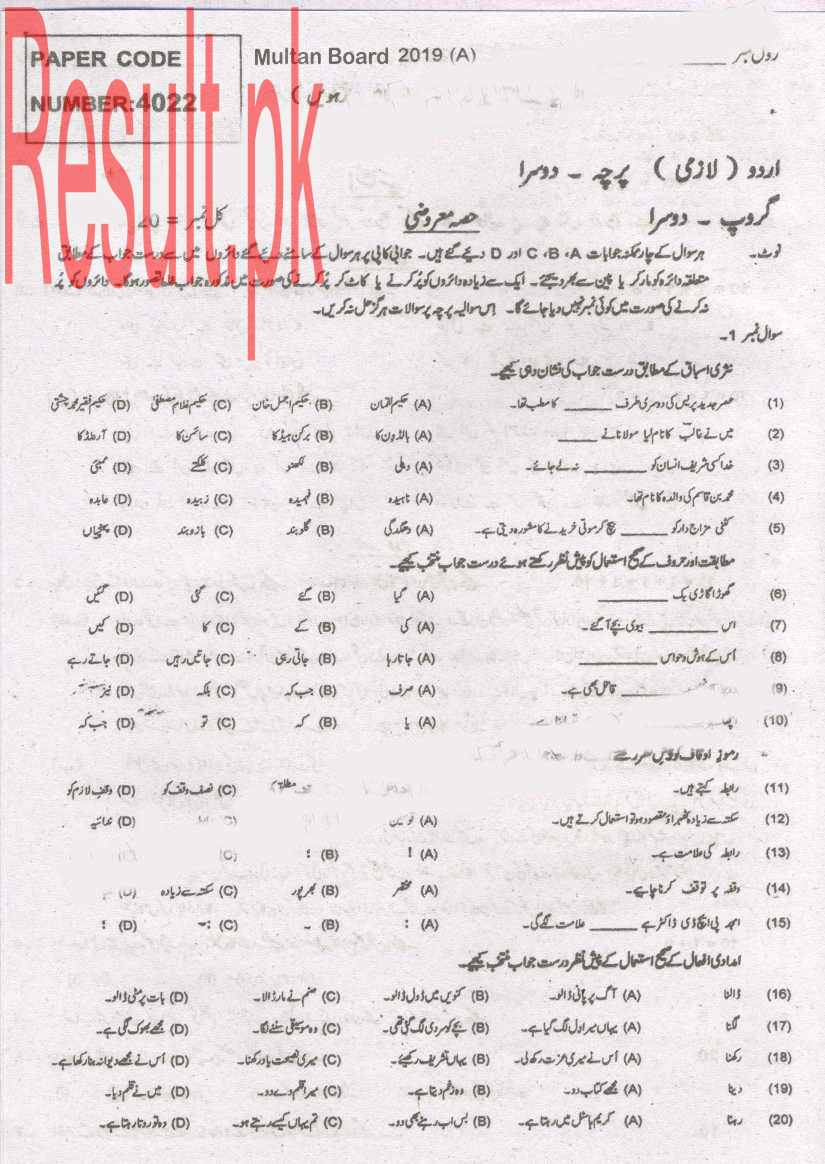 Result.pk
PAPER CODE
NUMBER:4022
Multan Board 2019 (A)
رول نمبر ______
اردو ( لازمی ) پرچہ ۔ دوسرا
گروپ ۔ دوسرا حصہ معروضی کل نمبر = 20
نوٹ۔ ہر سوال کے چار ممکنہ جوابات C ،B ،A اور D دیئے گئے ہیں۔ جوابی کاپی پر ہر سوال کے سامنے دیئے گئے دائروں میں سے درست جواب کے مطابق
متعلقہ دائرہ کو مارکر یا پین سے بھر دیجئے۔ ایک سے زیادہ دائروں کو پُر کرنے یا کاٹ کر پُر کرنے کی صورت میں مذکورہ جواب غلط تصور ہوگا۔ دائروں کو پُر
نہ کرنے کی صورت میں کوئی نمبر نہیں دیا جائے گا۔ اِس سوالیہ پرچہ پر سوالات ہرگز حل نہ کریں۔
سوال نمبر 1۔
نثری اسباق کے مطابق درست جواب کی نشان دہی کیجیے۔
(1) عصر جدید پریس کی دوسری طرف ______ کا مطب تھا۔ (A) حکیم لقمان (B) حکیم اجمل خان (C) حکیم غلام مصطفیٰ (D) حکیم فقیر محمد چشتی
(2) میں نے غالب کا نام لیا مولانا نے ______ (A) بالڈون کا (B) برکن ہیڈ کا (C) سائمن کا (D) آرنلڈ کا
(3) خدا کسی شریف انسان کو ______ نہ لے جائے۔ (A) دہلی (B) لکھنو (C) کلکتے (D) ممبئی
(4) محمد بن قاسم کی والدہ کا نام تھا۔ (A) ناہیدہ (B) فہمیدہ (C) زبیدہ (D) عابدہ
(5) کفنی مزاج دار کو ______ بیچ کر موتی خریدنے کا مشورہ دیتی ہے۔ (A) دھگدگی (B) گلو بند (C) بازو بند (D) پہنچیاں
مطابقت اور حروف کے صحیح استعمال کو پیش نظر رکھتے ہوئے درست جواب منتخب کیجیے۔
(6) گھوڑا گاڑی بک ______ (A) گیا (B) گئے (C) گئی (D) گئیں
(7) اس ______ بیوی بچے آ گئے۔ (A) کی (B) کے (C) کا (D) کیں
(8) اُس کے ہوش و حواس ______ (A) جاتا رہا (B) جاتی رہی (C) جاتیں رہیں (D) جاتے رہے
(9) ______ قاتل بھی ہے۔ (A) صرف (B) جب کہ (C) بلکہ (D) نیز
(10) (A) یا (B) کہ (C) تو (D) جب کہ
رموزِ اوقاف
(11) رابطہ کہتے ہیں۔ مطلق (C) نصف وقف کو (D) وقفِ لازم کو
(12) سکتہ سے زیادہ ٹھہراؤ مقصود ہو تو استعمال کرتے ہیں۔ (A) قوسین (D) ندائیہ
(13) رابطہ کی علامت ہے۔ (A) ! (B) ؛ (C)
(14) وقفہ پر توقف کرنا چاہیے۔ (A) مختصر (B) بھرپور (C) سکتہ سے زیادہ
(15) امجد پی ایچ ڈی ڈاکٹر ہے ______ علامت لگے گی۔ (A) : (B) ۔ (C) :۔ (D) ؛
امدادی افعال کے صحیح استعمال کے پیش نظر درست جواب منتخب کیجیے۔
(16) ڈالنا (A) آگ پر پانی ڈالو۔ (B) کنویں میں ڈول ڈالو۔ (C) صنم نے مار ڈالا۔ (D) بات پر مٹی ڈالو۔
(17) لگنا (A) یہاں میرا دل لگ گیا ہے۔ (B) بچے کو سردی لگ گئی تھی۔ (C) وہ موسیقی سننے لگا۔ (D) مجھے بھوک لگی ہے۔
(18) رکھنا (A) اُس نے میری عزت رکھ لی۔ (B) یہاں تشریف رکھیے۔ (C) میری نصیحت یاد رکھنا۔ (D) اُس نے مجھے دیوانہ بنا رکھا ہے۔
(19) دینا (A) مجھے کتاب دو۔ (B) وہ زخم دیتا ہے۔ (C) میرا قلم دے دو۔ (D) میں نے قلم دیا۔
(20) رہنا (A) کریم ہاسٹل میں رہتا ہے۔ (B) بس اب رہنے بھی دو۔ (C) تم یہاں کیسے رہتے ہو۔ (D) وہ تو روتا رہتا ہے۔